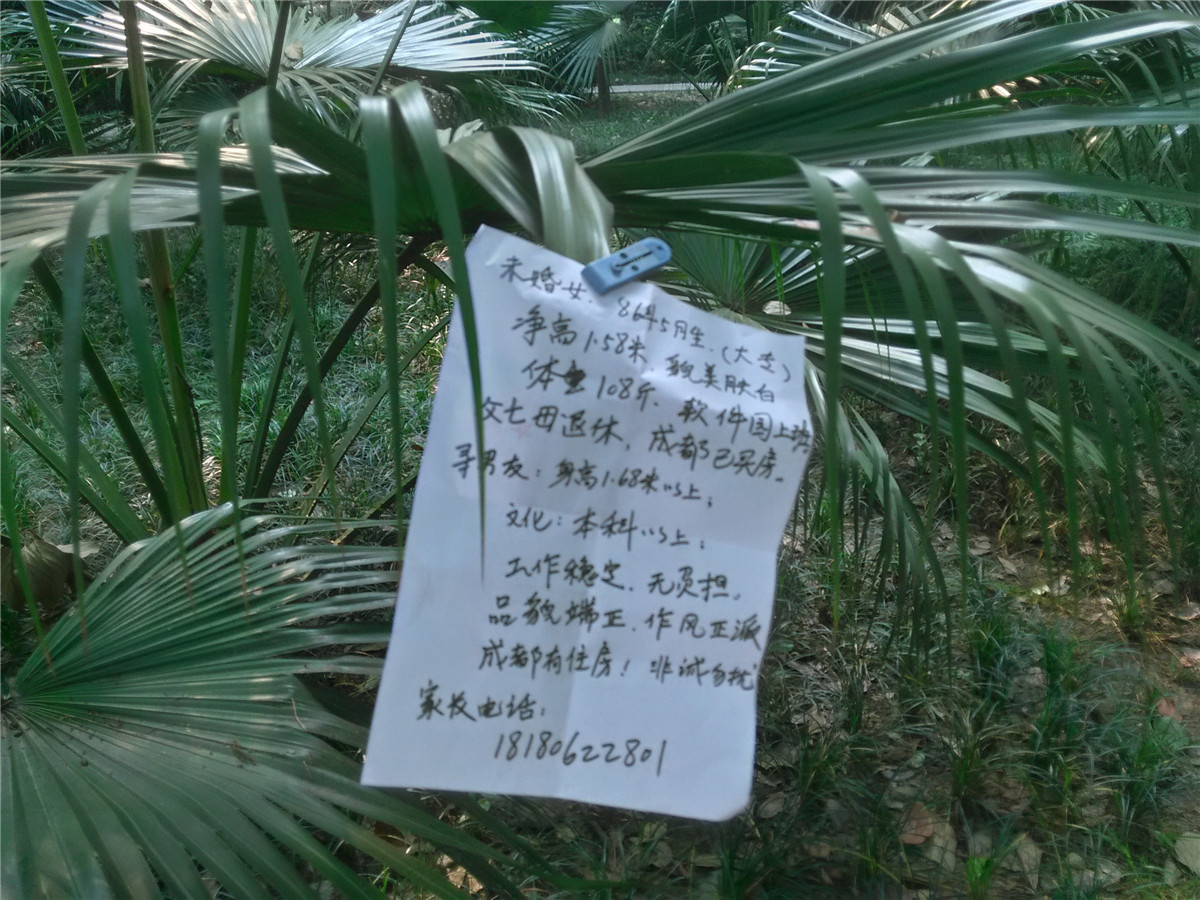 未婚女、86年5月生、(大专)
净高1.58米、貌美肤白
体重108斤、软件园上班
父母退休, 成都已买房。
寻男友: 身高1.68米以上;
文化: 本科以上;
工作稳定、无负担。
品貌端正、作风正派
成都有住房! 非诚勿扰
家长电话:
18180622801